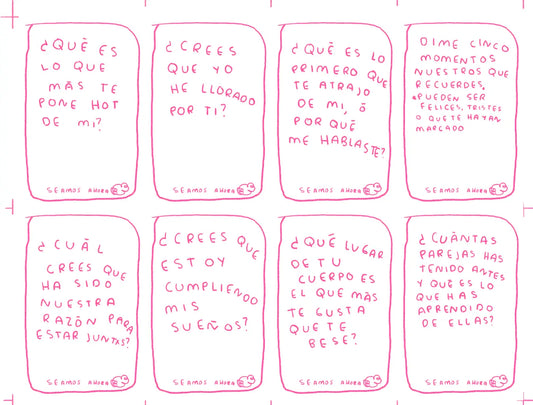 ¿QUÉ ES
LO QUE
MÁS TE
PONE HOT
DE MI?
SEAMOS AHORA
¿CREES
QUE YO
HE LLORADO
POR TI?
SEAMOS AHORA
¿QUÉ ES LO
PRIMERO QUE
TE ATRAJO
DE MI, Ó
POR QUÉ
ME HABLASTE?
SEAMOS AHORA
DIME CINCO
MOMENTOS
NUESTROS QUE
RECUERDES,
*PUEDEN SER
FELICES, TRISTES
O QUE TE HAYAN
MARCADO
SEAMOS AHORA
¿CUÁL
CREES QUE
HA SIDO
NUESTRA
RAZÓN PARA
ESTAR JUNTAS?
SEAMOS AHORA
¿CREES QUE
ESTOY
CUMPLIENDO
MIS
SUEÑOS?
SEAMOS AHORA
¿QUÉ LUGAR
DE TU
CUERPO ES
EL QUE MÁS
TE GUSTA
QUE TE
BESE?
SEAMOS AHORA
¿CUÁNTAS
PAREJAS HAS
TENIDO ANTES
Y QUÉ ES LO
QUE HAS
APRENDIDO
DE ELLAS?
SEAMOS AHORA